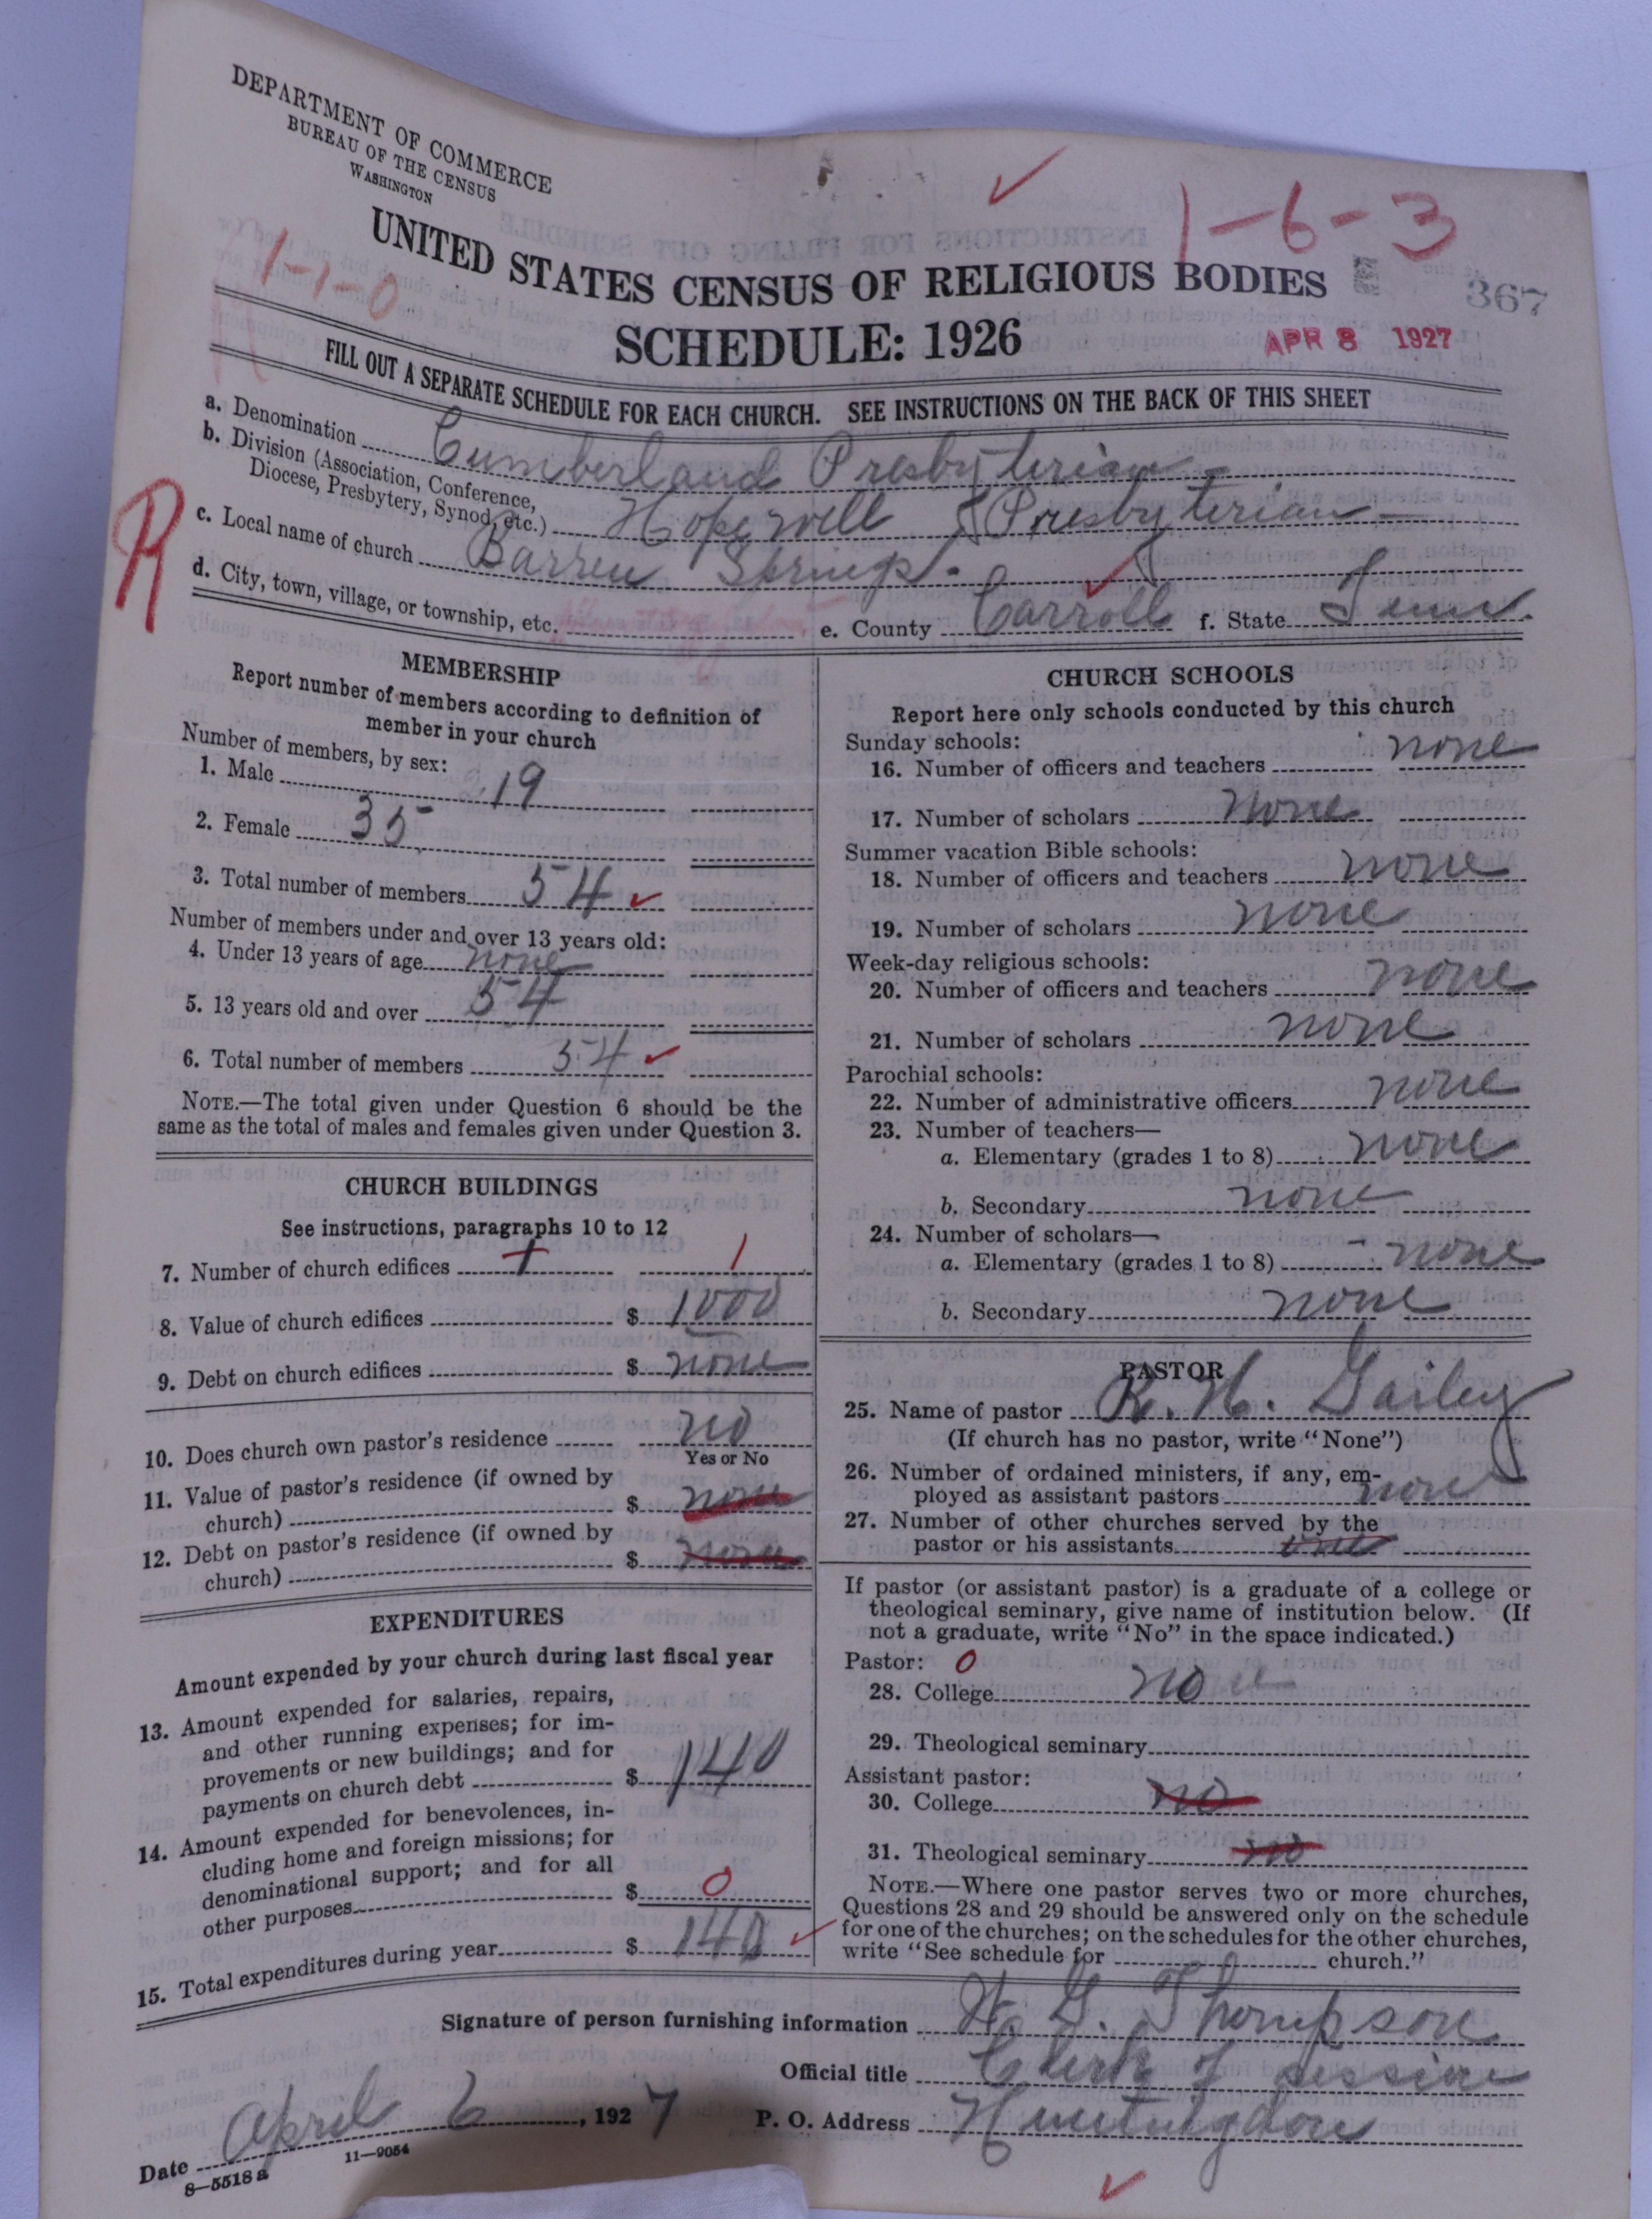 DEPARTMENT OF COMMERCE
BUREAU OF THE CENSUS
WASHINGTON
1-6-3
1-1-0
UNITED STATES CENSUS OF RELIGIOUS BODIES
367
SCHEDULE: 1926
APR 8 1927
FILL OUT A SEPARATE SCHEDULE FOR EACH CHURCH. SEE INSTRUCTIONS ON THE BACK OF THIS SHEET
R
a. Denomination Cumberland Presbyterian
b. Division (Association, Conference,
Diocese, Presbytery, Synod, etc.) Hopewell Presbyterian
c. Local name of church Barren Springs.
d. City, town, village, or township, etc. e. County Carroll f. State Tenn.
MEMBERSHIP
Report number of members according to definition of
member in your church
Number of members, by sex:
1. Male 19
2. Female 35
3. Total number of members 54
Number of members under and over 13 years old:
4. Under 13 years of age none
5. 13 years old and over 54
6. Total number of members 54
NOTE.—The total given under Question 6 should be the
same as the total of males and females given under Question 3.
CHURCH BUILDINGS
See instructions, paragraphs 10 to 12
7. Number of church edifices 1 1
8. Value of church edifices $ 1000
9. Debt on church edifices $ none
10. Does church own pastor's residence no
Yes or No
11. Value of pastor's residence (if owned by
church) $ none
12. Debt on pastor's residence (if owned by
church) $ none
EXPENDITURES
Amount expended by your church during last fiscal year
13. Amount expended for salaries, repairs,
and other running expenses; for im-
provements or new buildings; and for
payments on church debt $ 140
14. Amount expended for benevolences, in-
cluding home and foreign missions; for
denominational support; and for all
other purposes $ 0
15. Total expenditures during year $ 140
CHURCH SCHOOLS
Report here only schools conducted by this church
Sunday schools:
16. Number of officers and teachers none
17. Number of scholars none
Summer vacation Bible schools:
18. Number of officers and teachers none
19. Number of scholars none
Week-day religious schools:
20. Number of officers and teachers none
21. Number of scholars none
Parochial schools:
22. Number of administrative officers none
23. Number of teachers—
a. Elementary (grades 1 to 8) none
b. Secondary none
24. Number of scholars—
a. Elementary (grades 1 to 8) none
b. Secondary none
PASTOR
25. Name of pastor R. H. Gailey
(If church has no pastor, write "None")
26. Number of ordained ministers, if any, em-
ployed as assistant pastors none
27. Number of other churches served by the
pastor or his assistants one
If pastor (or assistant pastor) is a graduate of a college or
theological seminary, give name of institution below. (If
not a graduate, write "No" in the space indicated.)
Pastor: 0
28. College no
29. Theological seminary
Assistant pastor:
30. College no
31. Theological seminary no
NOTE.—Where one pastor serves two or more churches,
Questions 28 and 29 should be answered only on the schedule
for one of the churches; on the schedules for the other churches,
write "See schedule for church."
Signature of person furnishing information H. G. Thompson
Official title Clerk of session
Date April 6, 1927 P. O. Address Huntingdon
8-5518 a 11-9054